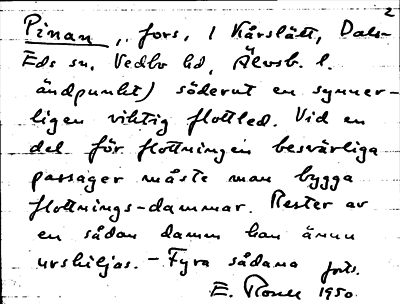 2
Pinan, fors, 1 Kårslätt, Dals-
Eds sn, Vedbo hd, Älvsb. l.
ändpunkt) söderut en synner-
ligen viktig flottled. Vid en
del för flottningen besvärliga
passager måste man bygga
flottnings-dammar. Rester av
en sådan damm kan ännu
urskiljas. - Fyra sådana forts.
E. 1950